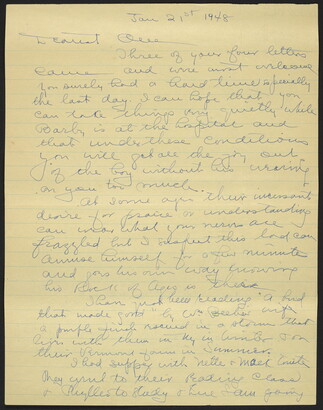 Jan 21st 1948
Dearest One
Three of your four letters
came and were most welcome
you surely had a hard time especially
the last day. I can hope that you
can take things very quietly while
Barby is at the hospital and
that under these conditions
you will get all the joy out
of the boy without his wearing
on you too much.
At some ages their incessant
desire for praise or understanding
can wear what your nerves are
frazzled but I suspect this lad can
amuse himself for a few minutes
and goes his own way knowing
his Rock of Ages is there
I have just been reading "A bird
that made good" by
a purple finch rescued in a storm that
lives with them in N.Y. in winter & on
their Vermont farm in Summer.
I had supper with Nette &
They went to their Reading Class
&